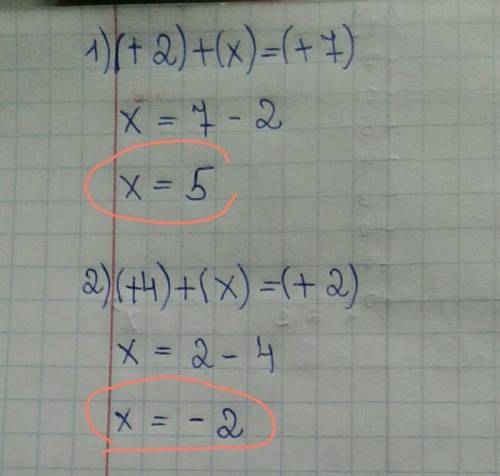 1) (+ 2) + (x) = (+ 7)
x = 7 - 2
x = 5
2) (+4) + (x) = (+ 2)
x = 2 - 4
x = - 2